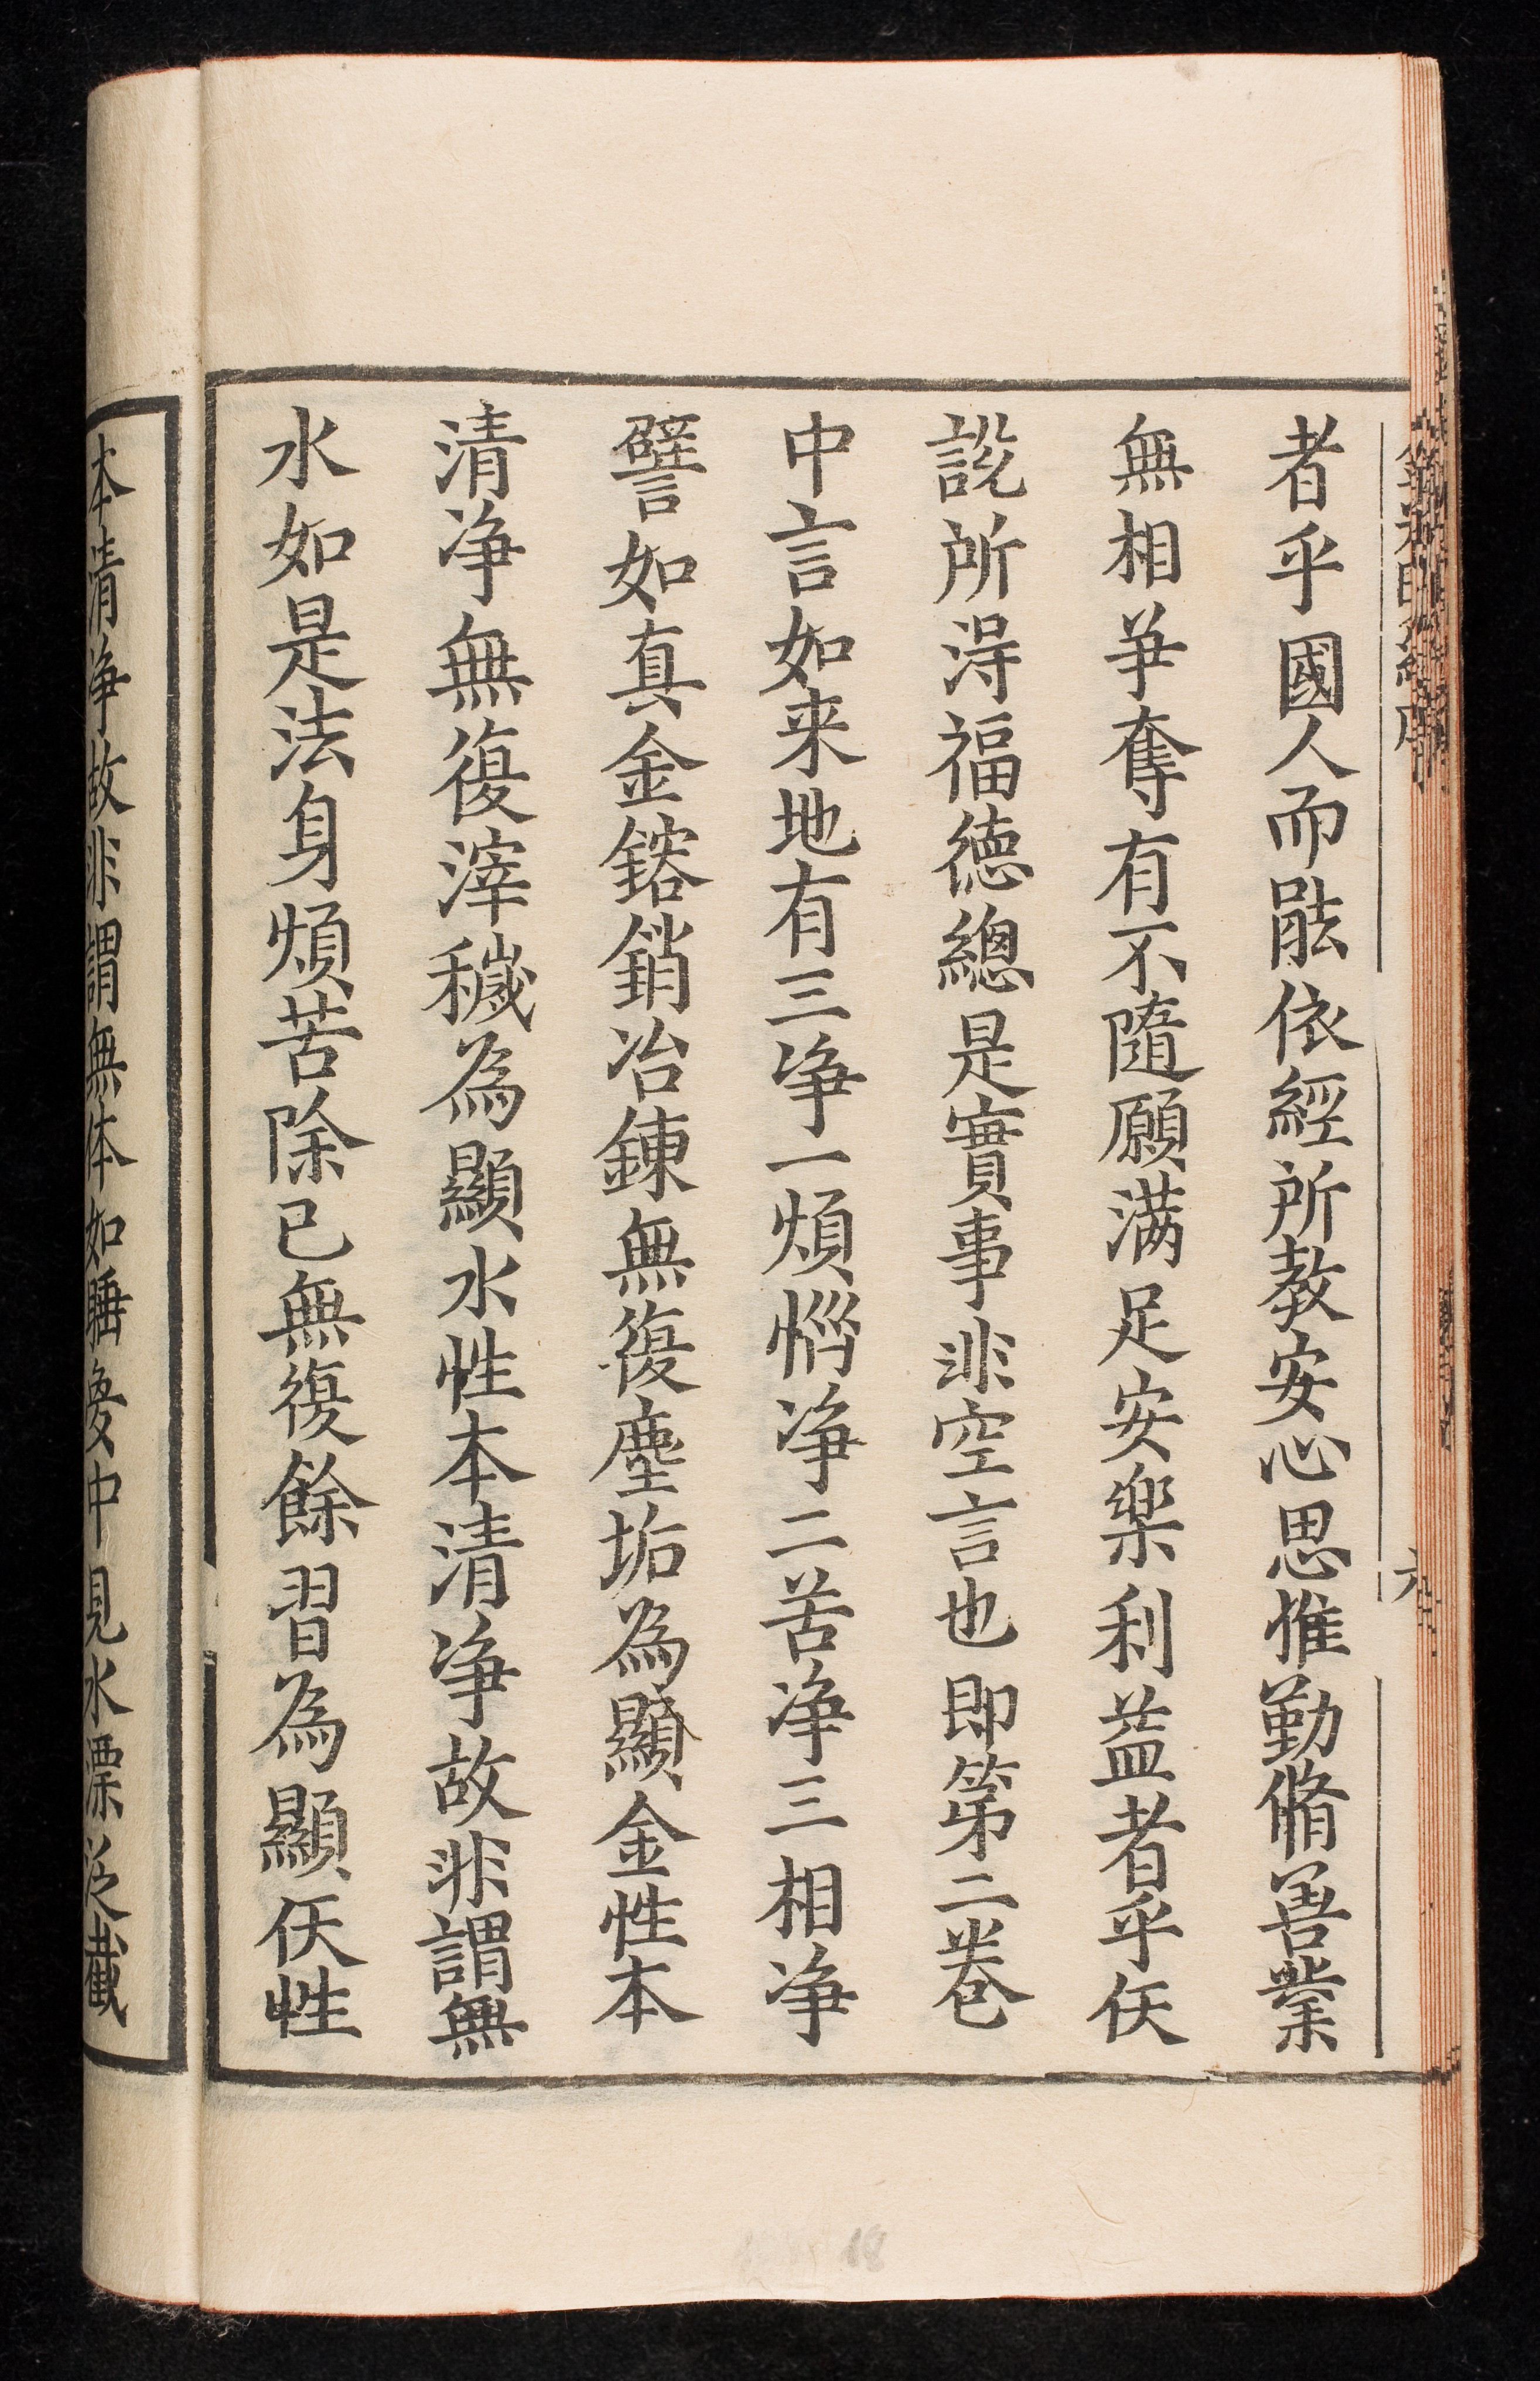 者乎國人而能依經所教安心思惟勤脩善業
無相爭奪有不隨願滿足安樂利益者乎仸
說所淂福德總是實事非空言也即第二卷
中言如来地有三净一煩惱净二苦净三相净
譬如真金鎔銷冶鍊無復塵垢為顯金性本
清净無復滓穢為顯水性本清净故非謂無
水如是法身煩苦除已無復餘習為顯仸性
本清净故非謂無体如睡夢中見水漂泛截
六
18